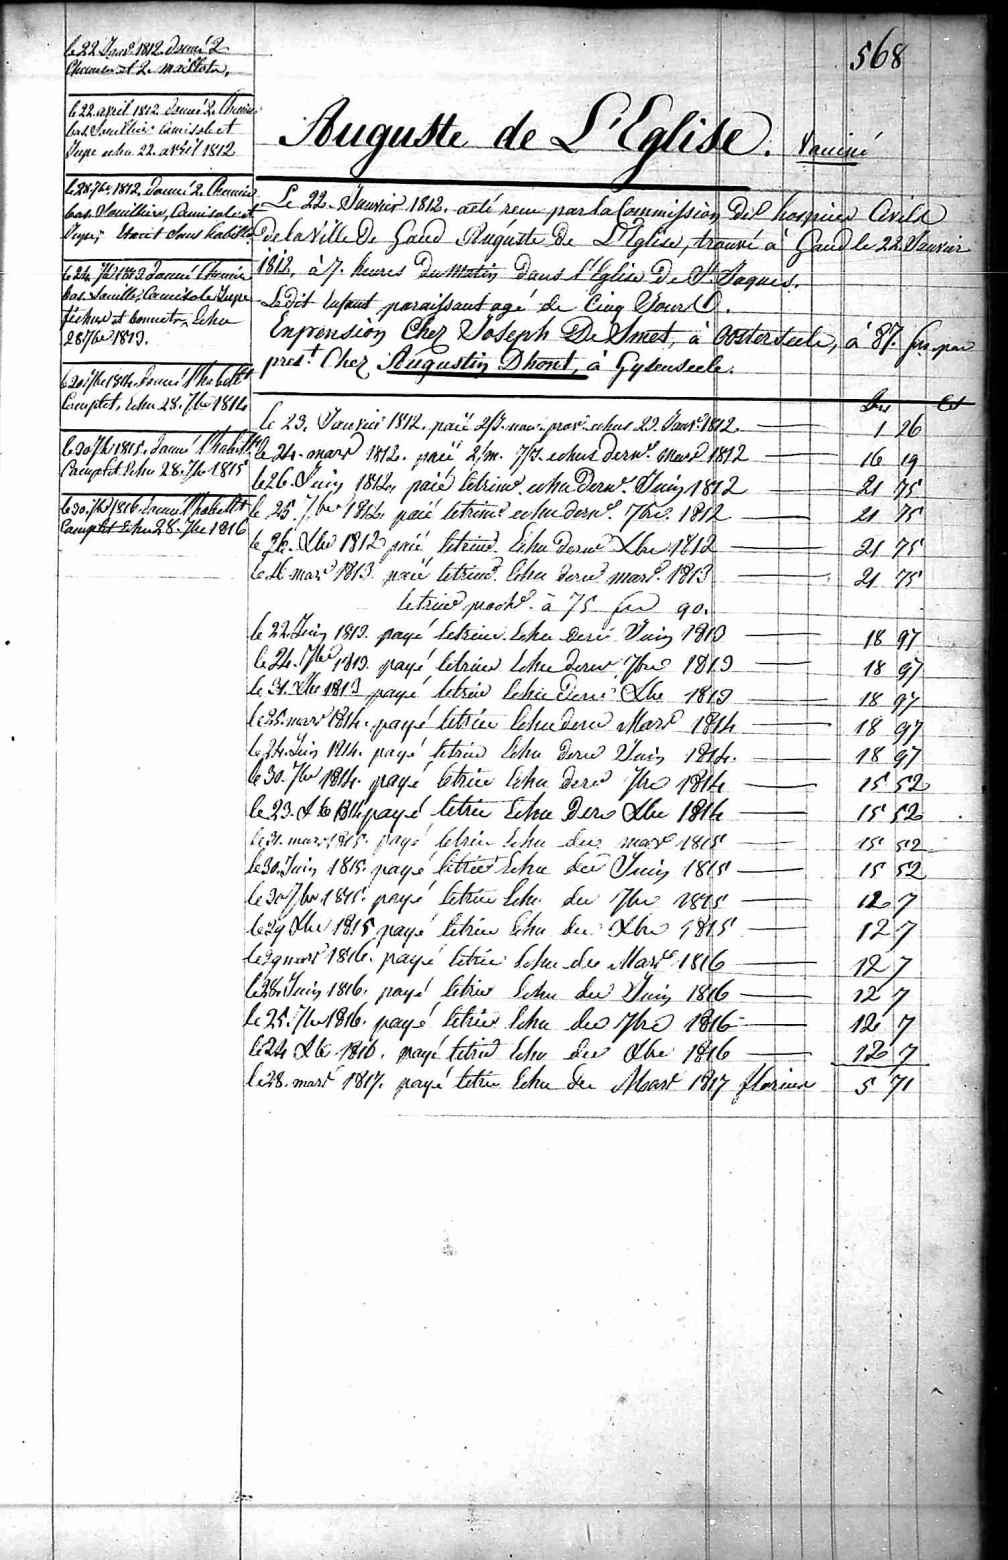 568
le 22 Janv. 1812. donné 2
Chemises et 2. maillots,
le 22 avril 1812 donné 2. Chemises
bas Souilliers Camisole et
Jupe echu 22. avril 1812
le 28. 7bre 1812. Donné 2. Chemises
bas. Souilliers, Camisole et
Jupes,
le 24 7bre 1813. Donné Chemise
bas. Souilles, Camisole Jupe
fichus et bonnets, Echu
28 7bre 1813.
le 20 7bre 1814. Donné l'habillt
Complet, Echu 28. 7bre 1814
le 30 7bre 1815. Donné l'habillt
Complet Echu 28. 7bre 1815
le 30. 7bre 1816. Donné l'habillt
Complet Echu 28. 7bre 1816
Auguste de L'Eglise. Vacciné
Le 22. Janvier 1812. a été reçu par la Commission des hospices Civils
de la Ville De Gand Auguste De L'Eglise, trouvé à Gand le 22. Janvier
1812, à 7. heures Du Matin Dans l'Eglise De St. Jaques.
Ledit Enfant paraissant agé de Cinq Jours.
En pension Chez Joseph De Smet, à Oosterseele, à 87. frs par
Chez Augustin Dhont, à Gysenseele.
le 23. Janvier 1812. paié echus 23. Janvr 1812. 1 26
le 24. mars 1812. paié 2/m. 7/J. echus dernr. Mars 1812 16 19
le 26. Juin 1812, paié le trimr. echu dernr. Juin 1812 21 75
le 25. 7bre 1812, paié le trimr echu dernr. 7bre. 1812 21 75
le 26. Xbre 1812 paié le trimr. Echu dernr Xbre 1812 21 75
le 26 mars 1813. paié le trimr. Echu dernr mars. 1813 21 75
le trimr proche. à 75 frs 90.
le 22. Juin 1813. payé le trim. Echu derr. Juin 1813 18 97
le 24. 7bre 1813. payé le trim Echu dernr 7bre 1813 18 97
le 31. Xbre 1813 payé le trim Echu derr Xbre 1813 18 97
le 25. mars 1814. payé le trim Echu dernr Mars 1814 18 97
le 24. Juin 1814. payé le trim Echu dernr Juin 1814. 18 97
le 30. 7bre 1814. payé le trim Echu derr 7bre 1814 15 52
le 23. Xbre 1814 payé le trim Echu Derr Xbre 1814 15 52
le 31. mars 1815. payé le trim Echu der mars 1815 15 52
le 30. Juin 1815. payé le trim Echu der Juin 1815 15 52
le 30 7bre 1815. payé le trim Echu der 7bre 1815 12 7
le 29 Xbre 1815 payé le trim Echu der Xbre 1815 12 7
le 29 mars 1816. payé le trim Echu der Mars 1816 12 7
le 28. Juin 1816. payé le trim Echu der Juin 1816 12 7
le 25. 7bre 1816. payé le trim Echu der 7bre 1816 12 7
le 24 Xbre 1816. payé le trim Echu der Xbre 1816 12 7
le 28. mars 1817. payé le trim Echu der Mars 1817 florins 5 71